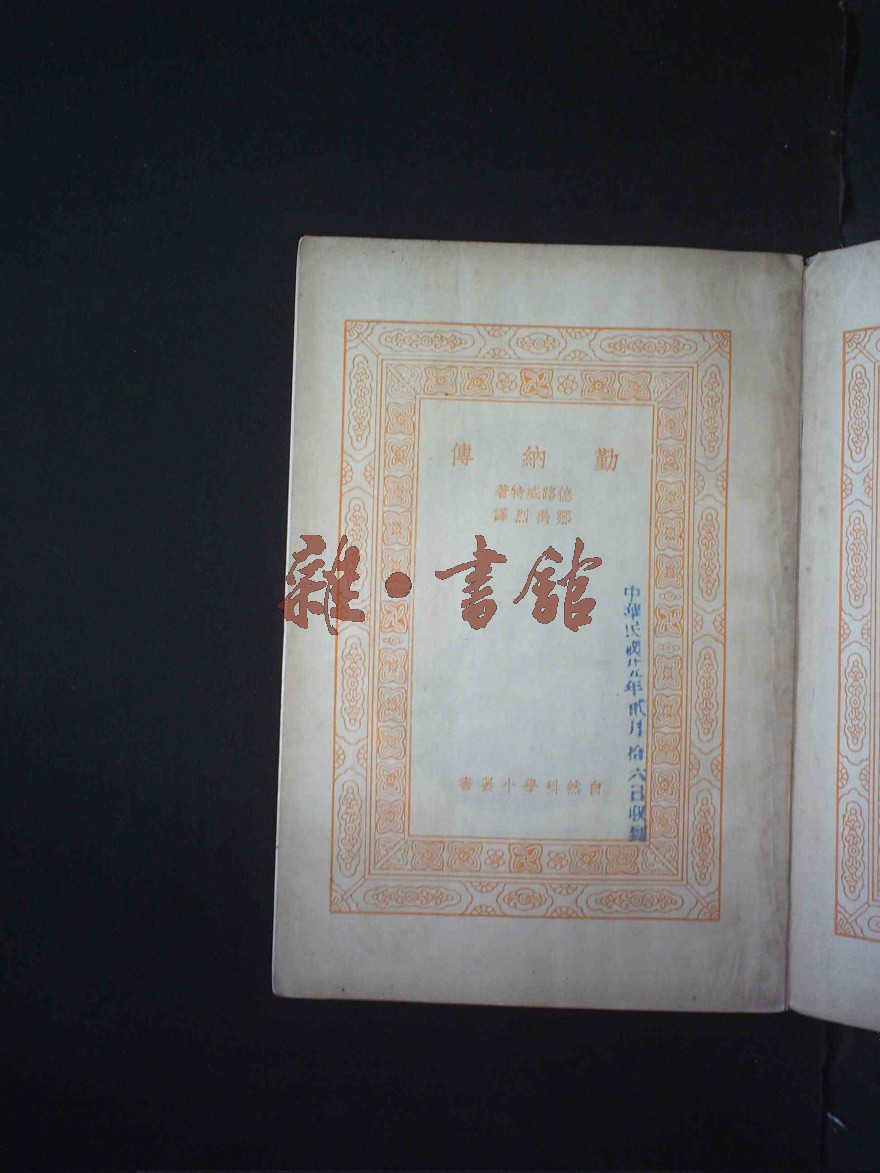 勤納傳
德路威特著
禹烈譯
雜·書館
自然科學小叢書
中華民國廿九年貳月拾六日收到